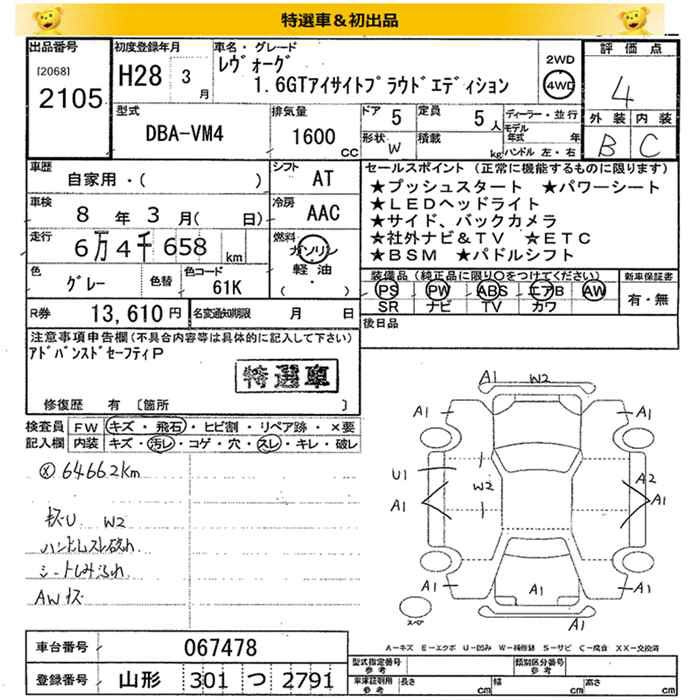 特選車＆初出品
出品番号
[2068]
2105
初度登録年月
H28 3 月
車名・グレード
レヴォーグ
1.6GTアイサイトプラウドエディション
2WD
4WD
評価点
4
外装 内装
B C
型式
DBA-VM4
排気量
1600 CC
ドア 5
定員 5 人
形状 W
積載 kg
ディーラー・並行
モデル年式 年
ハンドル 左・右
車歴
自家用・( )
シフト
AT
車検
8 年 3 月( 日)
冷房
AAC
走行
6万4千658 km
燃料
ガソリン
軽油
・
色
グレー
色替
色コード
61K
R券 13,610 円
名変通知期限 月 日
セールスポイント (正常に機能するものに限ります)
★プッシュスタート ★パワーシート
★LEDヘッドライト
★サイド、バックカメラ
★社外ナビ&TV ★ETC
★BSM ★パドルシフト
装備品 (純正品に限り○をつけてください)
PS PW ABS エアB AW
SR ナビ TV カワ
新車保証書
有・無
後日品
注意事項申告欄 (不具合内容等は具体的に記入して下さい)
アドバンスドセーフティP
特選車
修復歴 有 [箇所 ]
検査員 FW キズ・飛石・ヒビ割・リペア跡・×要
記入欄 内装 キズ・汚レ・コゲ・穴・スレ・キレ・破レ
64662km
キズU W2
ハンドルスレ
シートしみ汚れ
AWキズ
A1 W2
A1 A1
U1 A2
W2
A1 A1
A1
A1 A1
スペア
A-キズ E-エクボ U-凹み W-補修跡 S-サビ C-腐食 XX-交換済
車台番号 067478
登録番号 山形 301 つ 2791
型式指定番号 参考
類別区分番号 参考
車庫証明用 参考
長さ cm 幅 cm 高さ cm